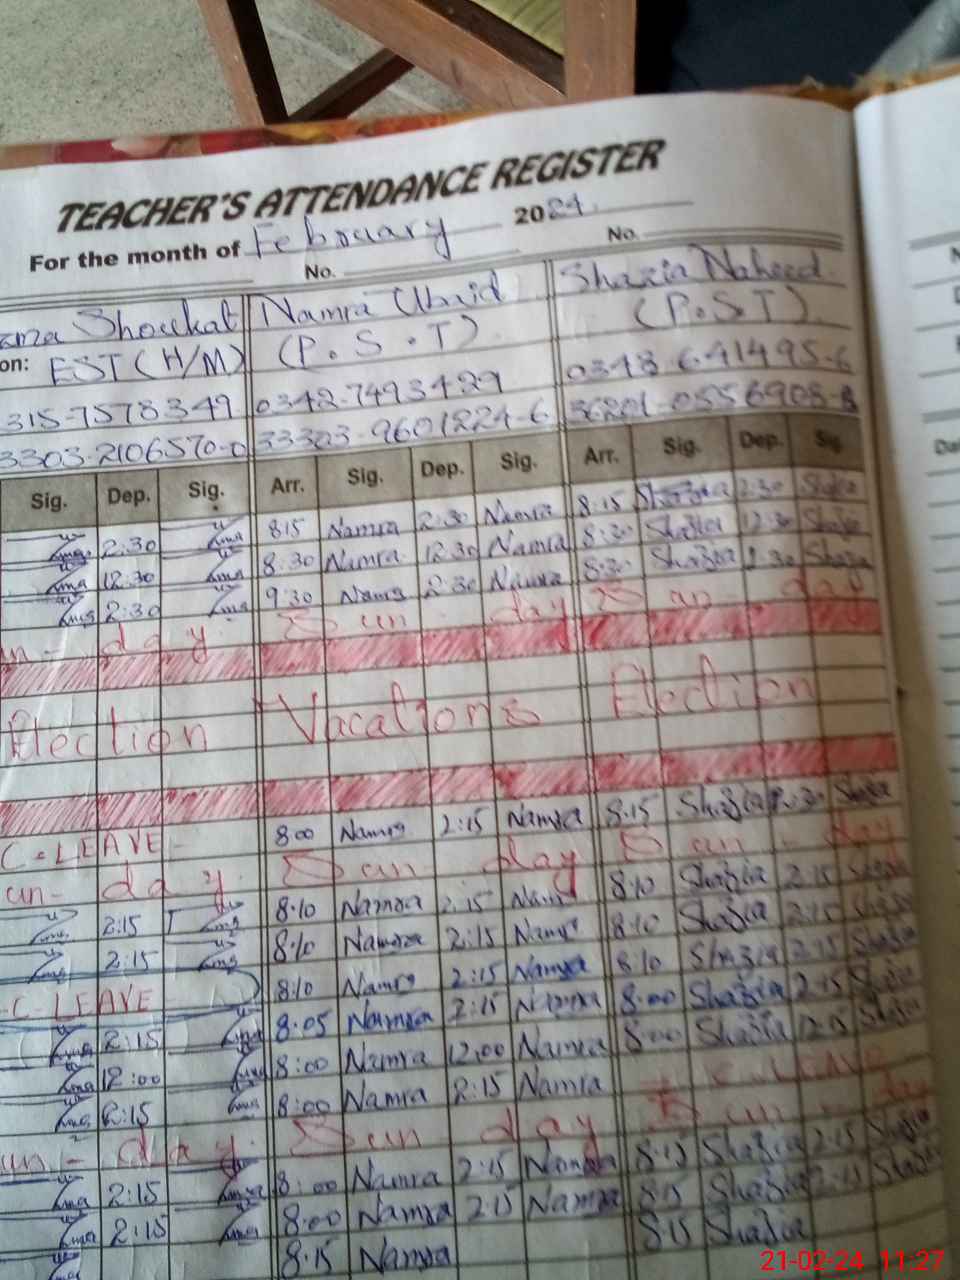 TEACHER'S ATTENDANCE REGISTER
For the month of February 2024.
No. No.
Shoukat Namra Ubaid Shazia Naheed.
on: EST (H/M) (P.S.T). (P.S.T)
315-7578349 0342-7493429 0348-6-41495-6
3303-2106570-0 33303-9601224-6 36201-0556908-8
Sig. Dep. Sig. Arr. Sig. Dep. Sig. Arr. Sig. Dep. Sig.
2:30 815 Namra 2:30 Namra 8:15 Shazia 2:30 Shazia
12:30 8:30 Namra 12:30 Namra 8:30 Shazia 12:30 Shazia
2:30 9:30 Namra 2:30 Namra 8:30 Shazia 2:30 Shazia
un-day. Sun day Sun-day
Election Vacations Election
C-LEAVE 8:00 Namra 2:15 Namra 8:15 Shazia 2:30 Shazia
un-day. Sun day Sun-day
2:15 8:10 Namra 2:15 Namra 8:10 Shazia 2:15 Shazia
2:15 8:10 Namra 2:15 Namra 8:10 Shazia 2:15 Shazia
C-LEAVE 8:10 Namra 2:15 Namra 8:10 Shazia 2:15 Shazia
2:15 8:05 Namra 2:15 Namra 8:00 Shazia 2:15 Shazia
12:00 8:00 Namra 12:00 Namra 8:00 Shazia 12:15 Shazia
2:15 8:00 Namra 2:15 Namra C LEAVE
un-day. Sun day Sun-day
2:15 8:00 Namra 2:15 Namra 8:15 Shazia 2:15 Shazia
2:15 8:00 Namra 2:15 Namra 8:15 Shazia 2:15 Shazia
8:15 Namra 8:15 Shazia
21-02-24 11:27